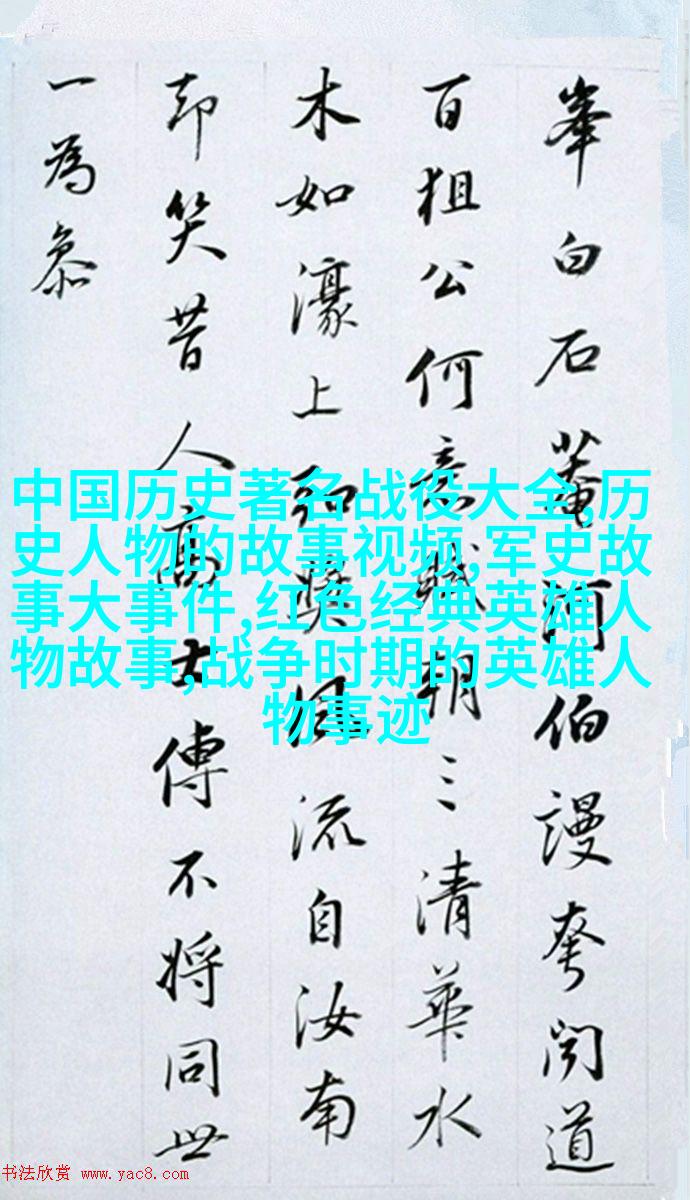 峯白石菴河伯謾夸聞道
百狙公何意賦朝三清華水
木如濠上獎風流自汝南
却笑昔人高士傳不將同世
一為叅
中国历史著名战役大全,历
史人物的故事视频,军史故
事大事件,红色经典英雄人
物故事,战争时期的英雄人
物事迹
书法欣赏 www.yac8.com